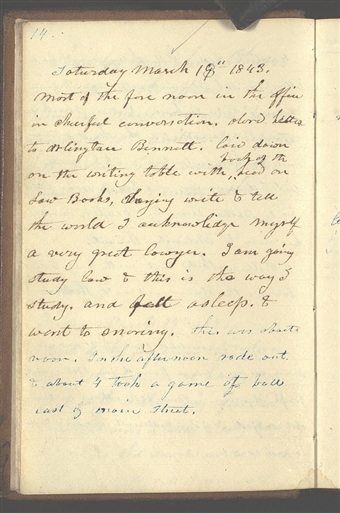 14.
Saturday March 18th 1843.
Most of the fore noon in the office
in cheerful conversation.
to Arlington Bennett. laid down
back of the
on the writing table with head on
Law Books, saying write & tell
the world I acknowledge myself
a very great lawyer. I am going
study law & this is the way I
study. and fell asleep. &
went to snoring. this was about
noon. In the afternoon rode out.
& about 4 took a game of ball
east of main Street.